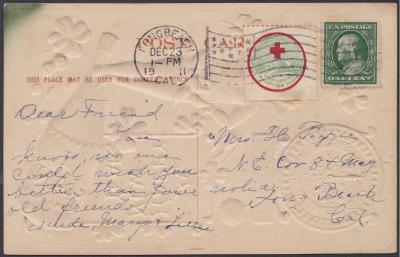 LONG BEACH
DEC 23
1-PM
19 11
CAL.
POST CARD
THIS PLACE MAY BE USED FOR CORRESPONDENCE
U.S. POSTAGE
ONE CENT
Dear Friend
You
know no one
could wish you
better than your
old friends
Mrs. H.
N. E. Cor 8 + Mag-
nolia,
Long Beach
Cal.